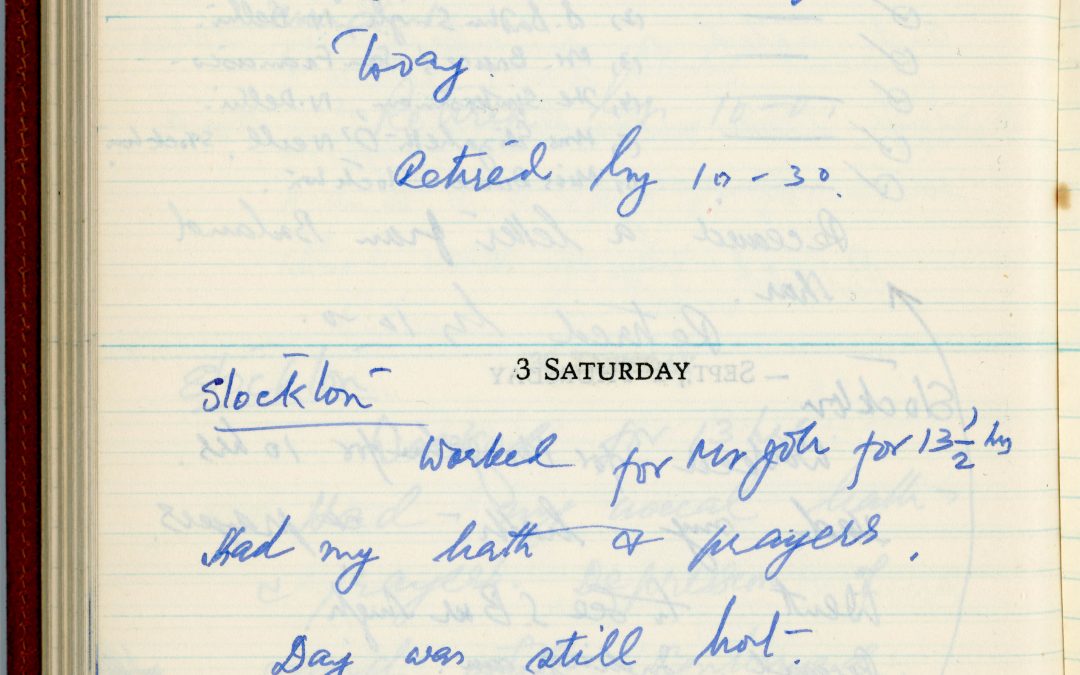 Today.
Retired by 10-30.
3 SATURDAY
Stockton
Worked for Mr for 13 1/2 hrs
Had my bath & prayers.
Day was still hot.